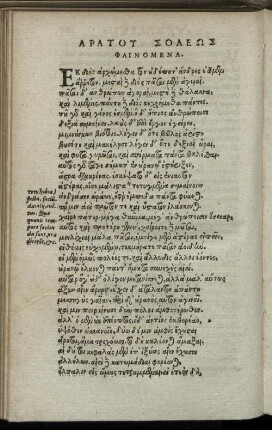 ΑΡΑΤΟΥ ΣΟΛΕΩΣ
ΦΑΙΝΟΜΕΝΑ.
ΕΚ διὸς ἀρχώμεσθα τὸν οὐδέποτ' ἄνδρες ἐῶμεν
ἄῤῥητον. μεσταὶ δὲ διὸς πᾶσαι μὲν ἀγυιαί.
πᾶσαι δ' ἀνθρώπων ἀγοραί. μεστὴ δὲ θάλασσα,
καὶ λιμένες. πάντη δὲ διὸς κεχρήμεθα πάντες.
τοῦ γὰρ καὶ γένος ἐσμέν. ὁ δ' ἤπιος ἀνθρώποισι
δεξιὰ σημαίνει. λαοὺς δ' ἐπὶ ἔργον ἐγείρει,
μιμνήσκων βιότοιο. λέγει δ' ὅτε βῶλος ἀρίστη
βουσί τε καὶ μακέλῃσι. λέγει δ' ὅτε δεξιαὶ ὧραι,
καὶ φυτὰ γυρῶσαι, καὶ σπέρματα πάντα βαλέσθαι.
αὐτὸς γὰρ τά γε σήματ' ἐν οὐρανῷ ἐστήριξεν,
ἄστρα διακρίνας. ἐσκέψατο δ' εἰς ἐνιαυτὸν
ἀστέρας, οἵ κε μάλιστα τετυγμένα σημαίνοιεν
ἀνδράσιν ὡράων, ὄφρ' ἔμπεδα πάντα φύωνται.
τῷ μιν ἀεὶ πρῶτόν τε καὶ ὕστατον ἱλάσκονται.
χαῖρε πάτερ μέγα θαῦμα, μέγ' ἀνθρώποισιν ὄνειαρ,
αὐτὸς καὶ προτέρη γενεή. χαίροιτε δὲ μοῦσαι
μειλίχιαι μάλα πᾶσαι. ἐμοί γε μὲν ἀστέρας εἰπεῖν
ᾗ θέμις εὐχομένῳ, τεκμήρατε πᾶσαν ἀοιδήν.
οἱ μὲν ὁμῶς πολέες τε καὶ ἄλλυδις ἄλλοι ἐόντες,
οὐρανῷ ἕλκονται πάντ' ἤματα συνεχὲς αἰεί.
αὐτὰρ ὅγ' οὐδ' ὀλίγον μετανίσσεται, ἀλλὰ μάλ' αὕτως
ἄξων αἰὲν ἄρηρεν. ἔχει δ' ἀτάλαντον ἁπάντη
μεσσηγὺς γαῖαν. περὶ δ' οὐρανὸς αὐτὸν ἀγινεῖ.
καί μιν πειραίνουσι δύω πόλοι ἀμφοτέρωθεν.
ἀλλ' ὁ μὲν οὐκ ἐπίοπτος. ὁ δ' ἀντίος ἐκ βορέαο,
ὑψόθεν ὠκεανοῖο. δύω δέ μιν ἀμφὶς ἔχουσαι
ἄρκτοι, ἅμα τροχόωσι. τὸ δὴ καλέονται ἅμαξαι.
αἱ δ' ἤτοι κεφαλὰς μὲν ἐπ' ἰξύας αἰὲν ἔχουσιν
ἀλλήλων. αἰεὶ δὲ κατωμάδιαι φορέονται,
ἔμπαλιν εἰς ὤμους τετραμμέναι. εἰ ἐτεὸν δὴ,